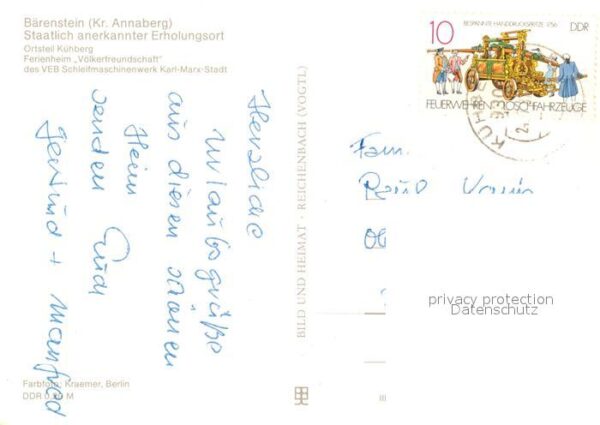 Bärenstein (Kr. Annaberg)
Staatlich anerkannter Erholungsort
Ortsteil Kühberg
Ferienheim „Völkerfreundschaft"
des VEB Schleifmaschinenwerk Karl-Marx-Stadt
Herzliche
Urlaubsgrüße
aus diesem schönen
Heim
senden Euch
Gertrud + Manfred
Farbfoto: Kraemer, Berlin
DDR M
BILD UND HEIMAT · REICHENBACH (VOGTL)
10
BESPANNTE HANDDRUCKSPRITZE 1756
DDR
FEUERWEHREN LÖSCHFAHRZEUGE
Fam.
privacy protection
Datenschutz